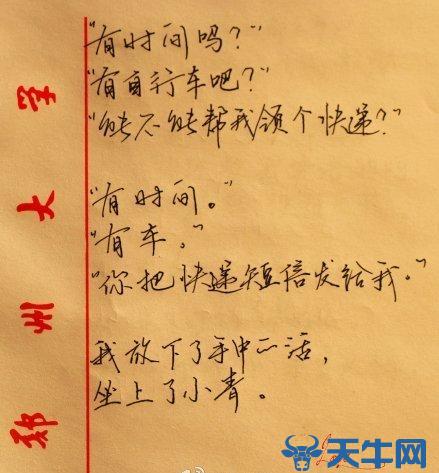 "有时间吗？"
"有自行车吧？"
"能不能帮我领个快递？"
"有时间。"
"有车。"
"你把快递短信发给我。"
我放下了手中的活，
坐上了小青。
郑州大学
天牛网